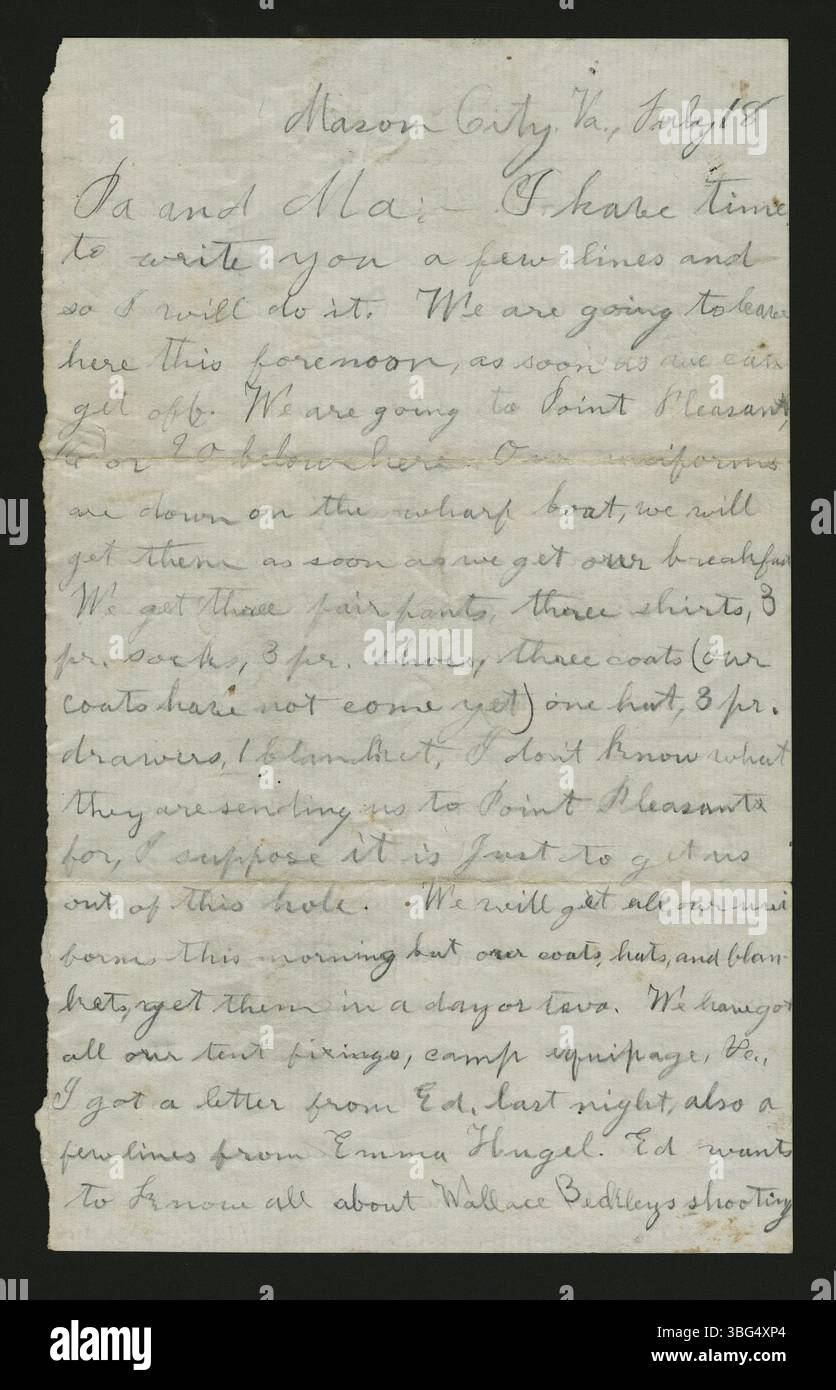 Mason City, Va., July 18
Pa and Ma; — I have time
to write you a few lines and
so I will do it. We are going to leave
here this forenoon, as soon as we can
get off. We are going to Point Pleasant,
or 20 below here. Our uniforms
are down on the wharf boat, we will
get them as soon as we get our breakfast
We get three pair pants, three shirts, 3
pr. socks, 3 pr. shoes, three coats (our
coats have not come yet) one hat, 3 pr.
drawers, 1 blanket, I don't know what
they are sending us to Point Pleasants
for, I suppose it is Just to get us
out of this hole. We will get all our uni
forms this morning but our coats, hats, and blan-
kets, get them in a day or two. We have got
all our tent fixings, camp equipage, &c.,
I got a letter from Ed. last night, also a
few lines from Emma Hugel. Ed wants
to know all about Wallace Beckleys shooting
alamy
Image ID: 3BG4XP4
www.alamy.com